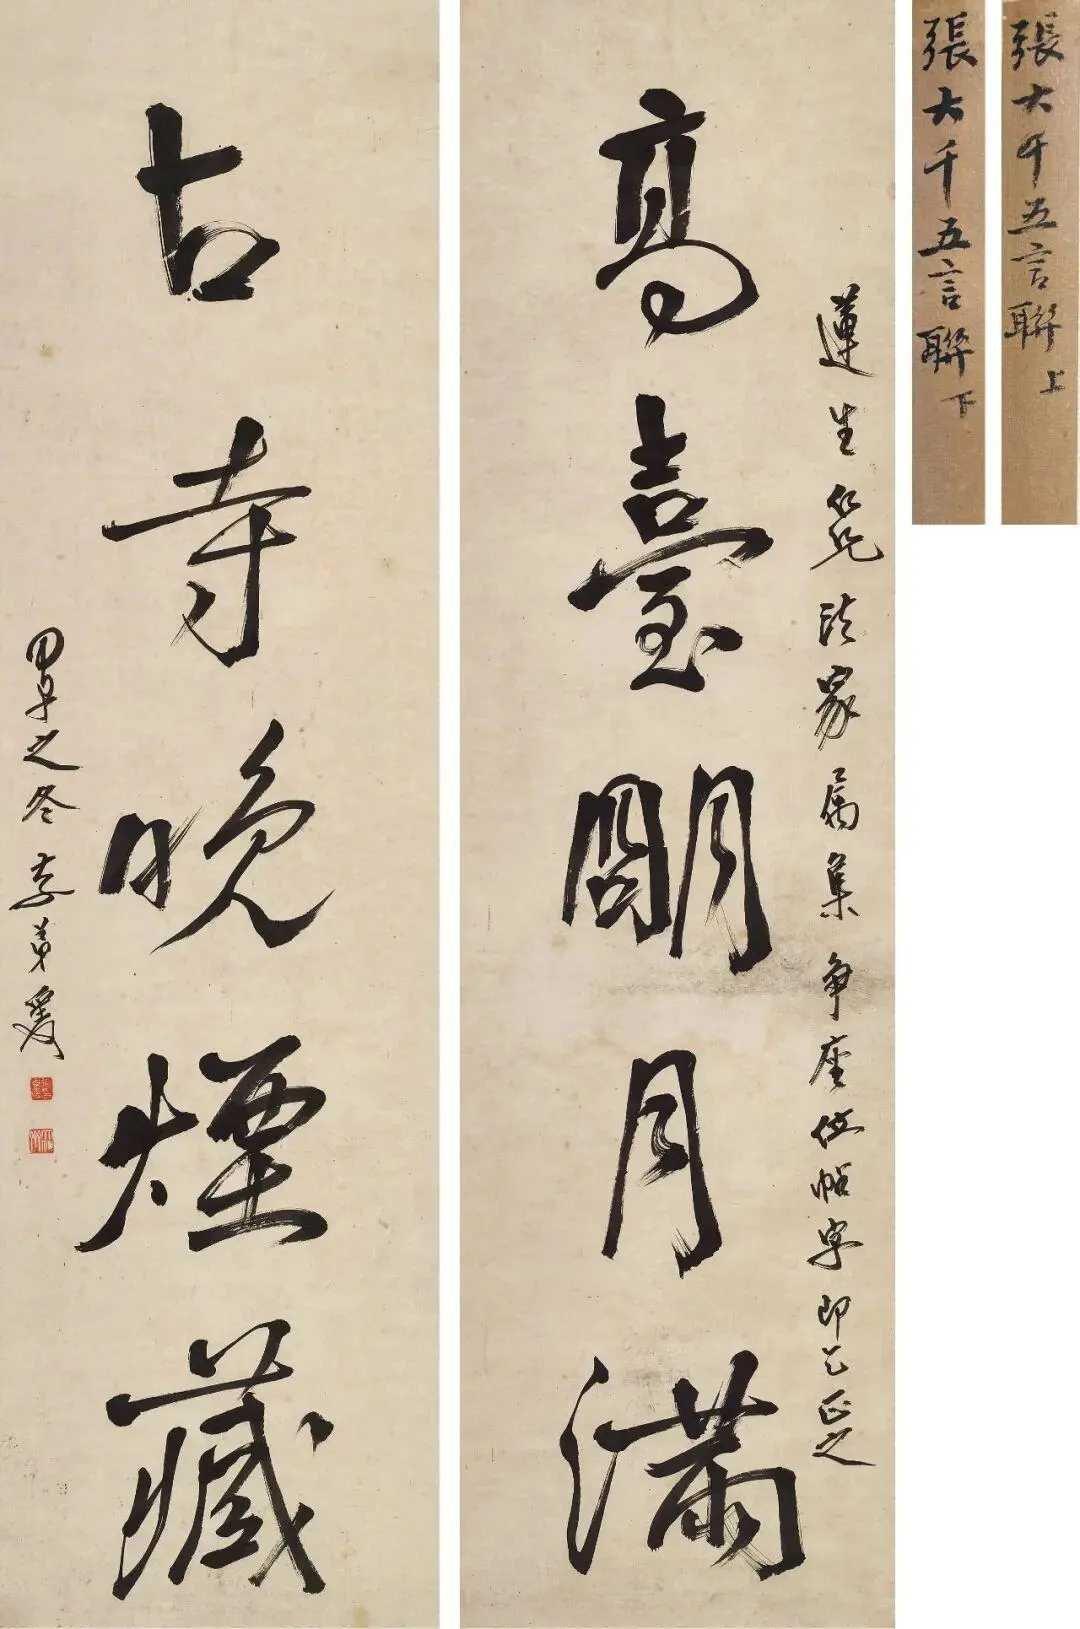 張大千五言聯 上
張大千五言聯 下
蓮生仁兄法家屬集爭座位帖字即乞正之
高臺朙月滿
古寺晚煙藏
之冬 大千弟爰